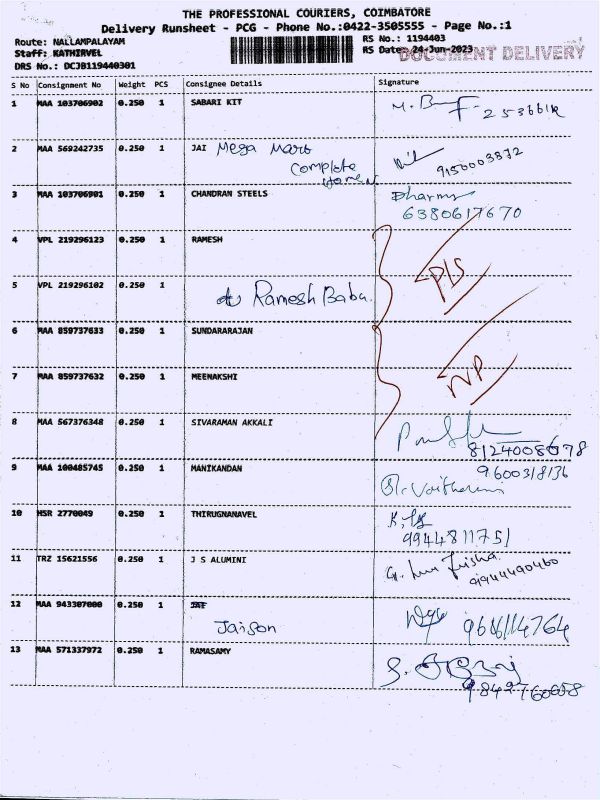 THE PROFESSIONAL COURIERS, COIMBATORE
Delivery Runsheet - PCG - Phone No.:0422-3505555 - Page No.:1
Route: NALLAMPALAYAM
RS No.: 1194403
Staff: KATHIRVEL
RS Date: 24-Jun-2023
DOCUMENT DELIVERY
DRS No.: DCJB119440301
S No Consignment No Weight PCS Consignee Details Signature
1 MAA 103706902 0.250 1 SABARI KIT
2 MAA 569242735 0.250 1 JAI Mega Mart
Complete
9150003872
3 MAA 103706901 0.250 1 CHANDRAN STEELS Dharma
6380617670
4 VPL 219296123 0.250 1 RAMESH
5 VPL 219296102 0.250 1 Ramesh Babu
6 MAA 859737633 0.250 1 SUNDARARAJAN
7 MAA 859737632 0.250 1 MEENAKSHI
8 MAA 567376348 0.250 1 SIVARAMAN AKKALI
8124008678
9 MAA 100485745 0.250 1 MANIKANDAN 9600318136
10 HSR 2770049 0.250 1 THIRUGNANAVEL
9944811751
11 TRZ 15621556 0.250 1 J S ALUMINI
12 MAA 943307000 0.250 1
Jaison
13 MAA 571337972 0.250 1 RAMASAMY